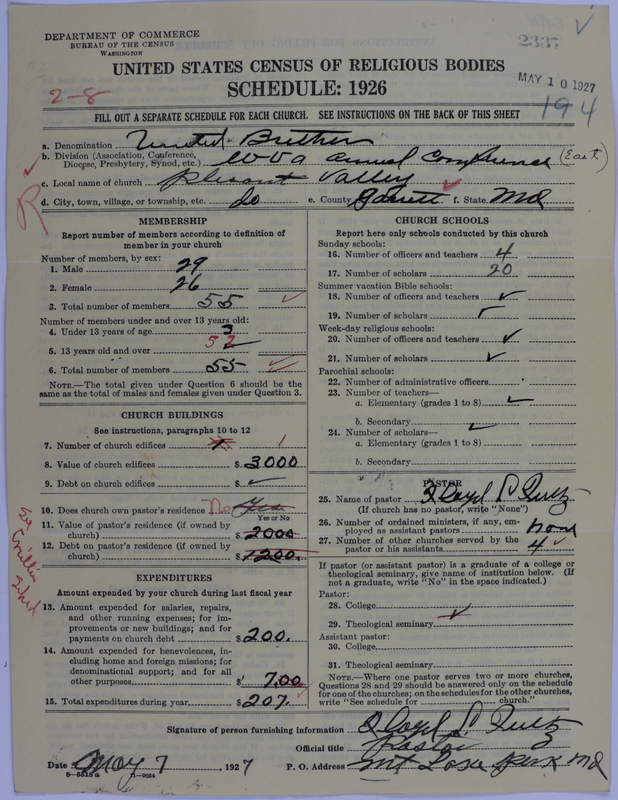 DEPARTMENT OF COMMERCE
BUREAU OF THE CENSUS
WASHINGTON
UNITED STATES CENSUS OF RELIGIOUS BODIES
SCHEDULE: 1926
MAY 10 1927
2-8
194
FILL OUT A SEPARATE SCHEDULE FOR EACH CHURCH. SEE INSTRUCTIONS ON THE BACK OF THIS SHEET
a. Denomination United Brethren
b. Division (Association, Conference, Diocese, Presbytery, Synod, etc.) W Va Annual Conference (East)
c. Local name of church Plesant Valley
d. City, town, village, or township, etc. do e. County Garrett f. State Md
R
MEMBERSHIP
Report number of members according to definition of
member in your church
Number of members, by sex:
1. Male 29
2. Female 26
3. Total number of members 55
Number of members under and over 13 years old:
4. Under 13 years of age 3
5. 13 years old and over 52
6. Total number of members 55
NOTE.—The total given under Question 6 should be
same as the total of males and females given under Question 3.
CHURCH BUILDINGS
See instructions, paragraphs 10 to 12
7. Number of church edifices 1 1
8. Value of church edifices $ 3000
9. Debt on church edifices $
10. Does church own pastor's residence No Yes
Yes or No
11. Value of pastor's residence (if owned by
church) $ 2000
12. Debt on pastor's residence (if owned by
church) $ 1200.
EXPENDITURES
Amount expended by your church during last fiscal year
13. Amount expended for salaries, repairs,
and other running expenses; for im-
provements or new buildings; and for
payments on church debt $ 200.
14. Amount expended for benevolences, in-
cluding home and foreign missions; for
denominational support; and for all
other purposes $ 7.00
15. Total expenditures during year $ 207.
CHURCH SCHOOLS
Report here only schools conducted by this church
Sunday schools:
16. Number of officers and teachers 4
17. Number of scholars 20
Summer vacation Bible schools:
18. Number of officers and teachers
19. Number of scholars
Week-day religious schools:
20. Number of officers and teachers
21. Number of scholars
Parochial schools:
22. Number of administrative officers
23. Number of teachers—
a. Elementary (grades 1 to 8)
b. Secondary
24. Number of scholars—
a. Elementary (grades 1 to 8)
b. Secondary
PASTOR
25. Name of pastor
(If church has no pastor, write "None")
26. Number of ordained ministers, if any, em-
ployed as assistant pastors none
27. Number of other churches served by the
pastor or his assistants 4
If pastor (or assistant pastor) is a graduate of a college or
theological seminary, give name of institution below. (If
not a graduate, write "No" in the space indicated.)
Pastor:
28. College
29. Theological seminary
Assistant pastor:
30. College
31. Theological seminary
NOTE.—Where one pastor serves two or more churches,
Questions 28 and 29 should be answered only on the schedule
for one of the churches; on the schedules for the other churches,
write "See schedule for church."
Signature of person furnishing information
Official title Pastor
Date May 7, 1927 P. O. Address Mt Lake Park Md
8—5518a 11—9034